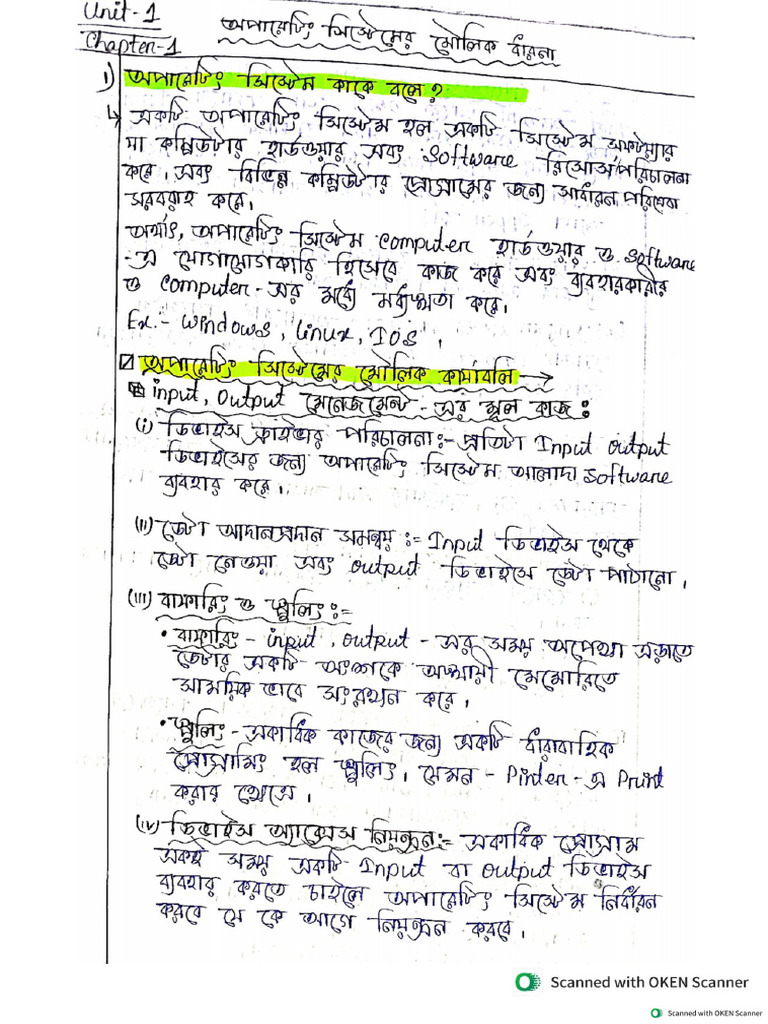 Unit-1
Chapter-1
অপারেটিং সিস্টেমের মৌলিক ধারনা
১) অপারেটিং সিস্টেম কাকে বলে?
↳ একটি অপারেটিং সিস্টেম হল একটি সিস্টেম সফটয়্যার
যা কম্পিউটার হার্ডওয়ার এবং Software রিসোর্স পরিচালনা
করে। এবং বিভিন্ন কম্পিউটার প্রোগ্রামের জন্য সাধারন পরিষেবা
সরবরাহ করে।
অর্থাৎ, অপারেটিং সিস্টেম Computer হার্ডওয়ার ও Software
-এ যোগাযোগকারি হিসেবে কাজ করে এবং ব্যবহারকারীর
ও Computer-এর মধ্যে মধ্যস্থতা করে।
Ex:- Windows, Linux, IOS।
অপারেটিং সিস্টেমের মৌলিক কার্যাবলি →
input, Output মেনেজমেন্ট-এর মূল কাজ:
(i) ডিভাইস ড্রাইভার পরিচালনা:- প্রতিটা Input output
ডিভাইসের জন্য অপারেটিং সিস্টেম আলাদা Software
ব্যবহার করে।
(ii) ডেটা আদানপ্রদান সমন্বয়:= Input ডিভাইস থেকে
ডেটা নেওয়া এবং output ডিভাইসে ডেটা পাঠানো।
(iii) বাফারিং ও স্পুলিং:=
• বাফারিং - input, output - এর সময় অপেক্ষা এড়াতে
ডেটার একটি অংশকে অস্থায়ী মেমোরিতে
সাময়িক ভাবে সংরক্ষন করে।
• স্পুলিং - একাধিক কাজের জন্য একটি ধারাবাহিক
প্রোগ্রামিং হল স্পুলিং। যেমন - Pinter-এ Print
করার ক্ষেত্রে।
(iv) ডিভাইস অ্যাক্সেস নিয়ন্ত্রন:= একাধিক প্রোগ্রাম
একই সময় একটি Input বা Output ডিভাইস
ব্যবহার করতে চাইলে অপারেটিং সিস্টেম নির্ধারন
করবে যে কে আগে নিয়ন্ত্রন করবে।
Scanned with OKEN Scanner
Scanned with OKEN Scanner